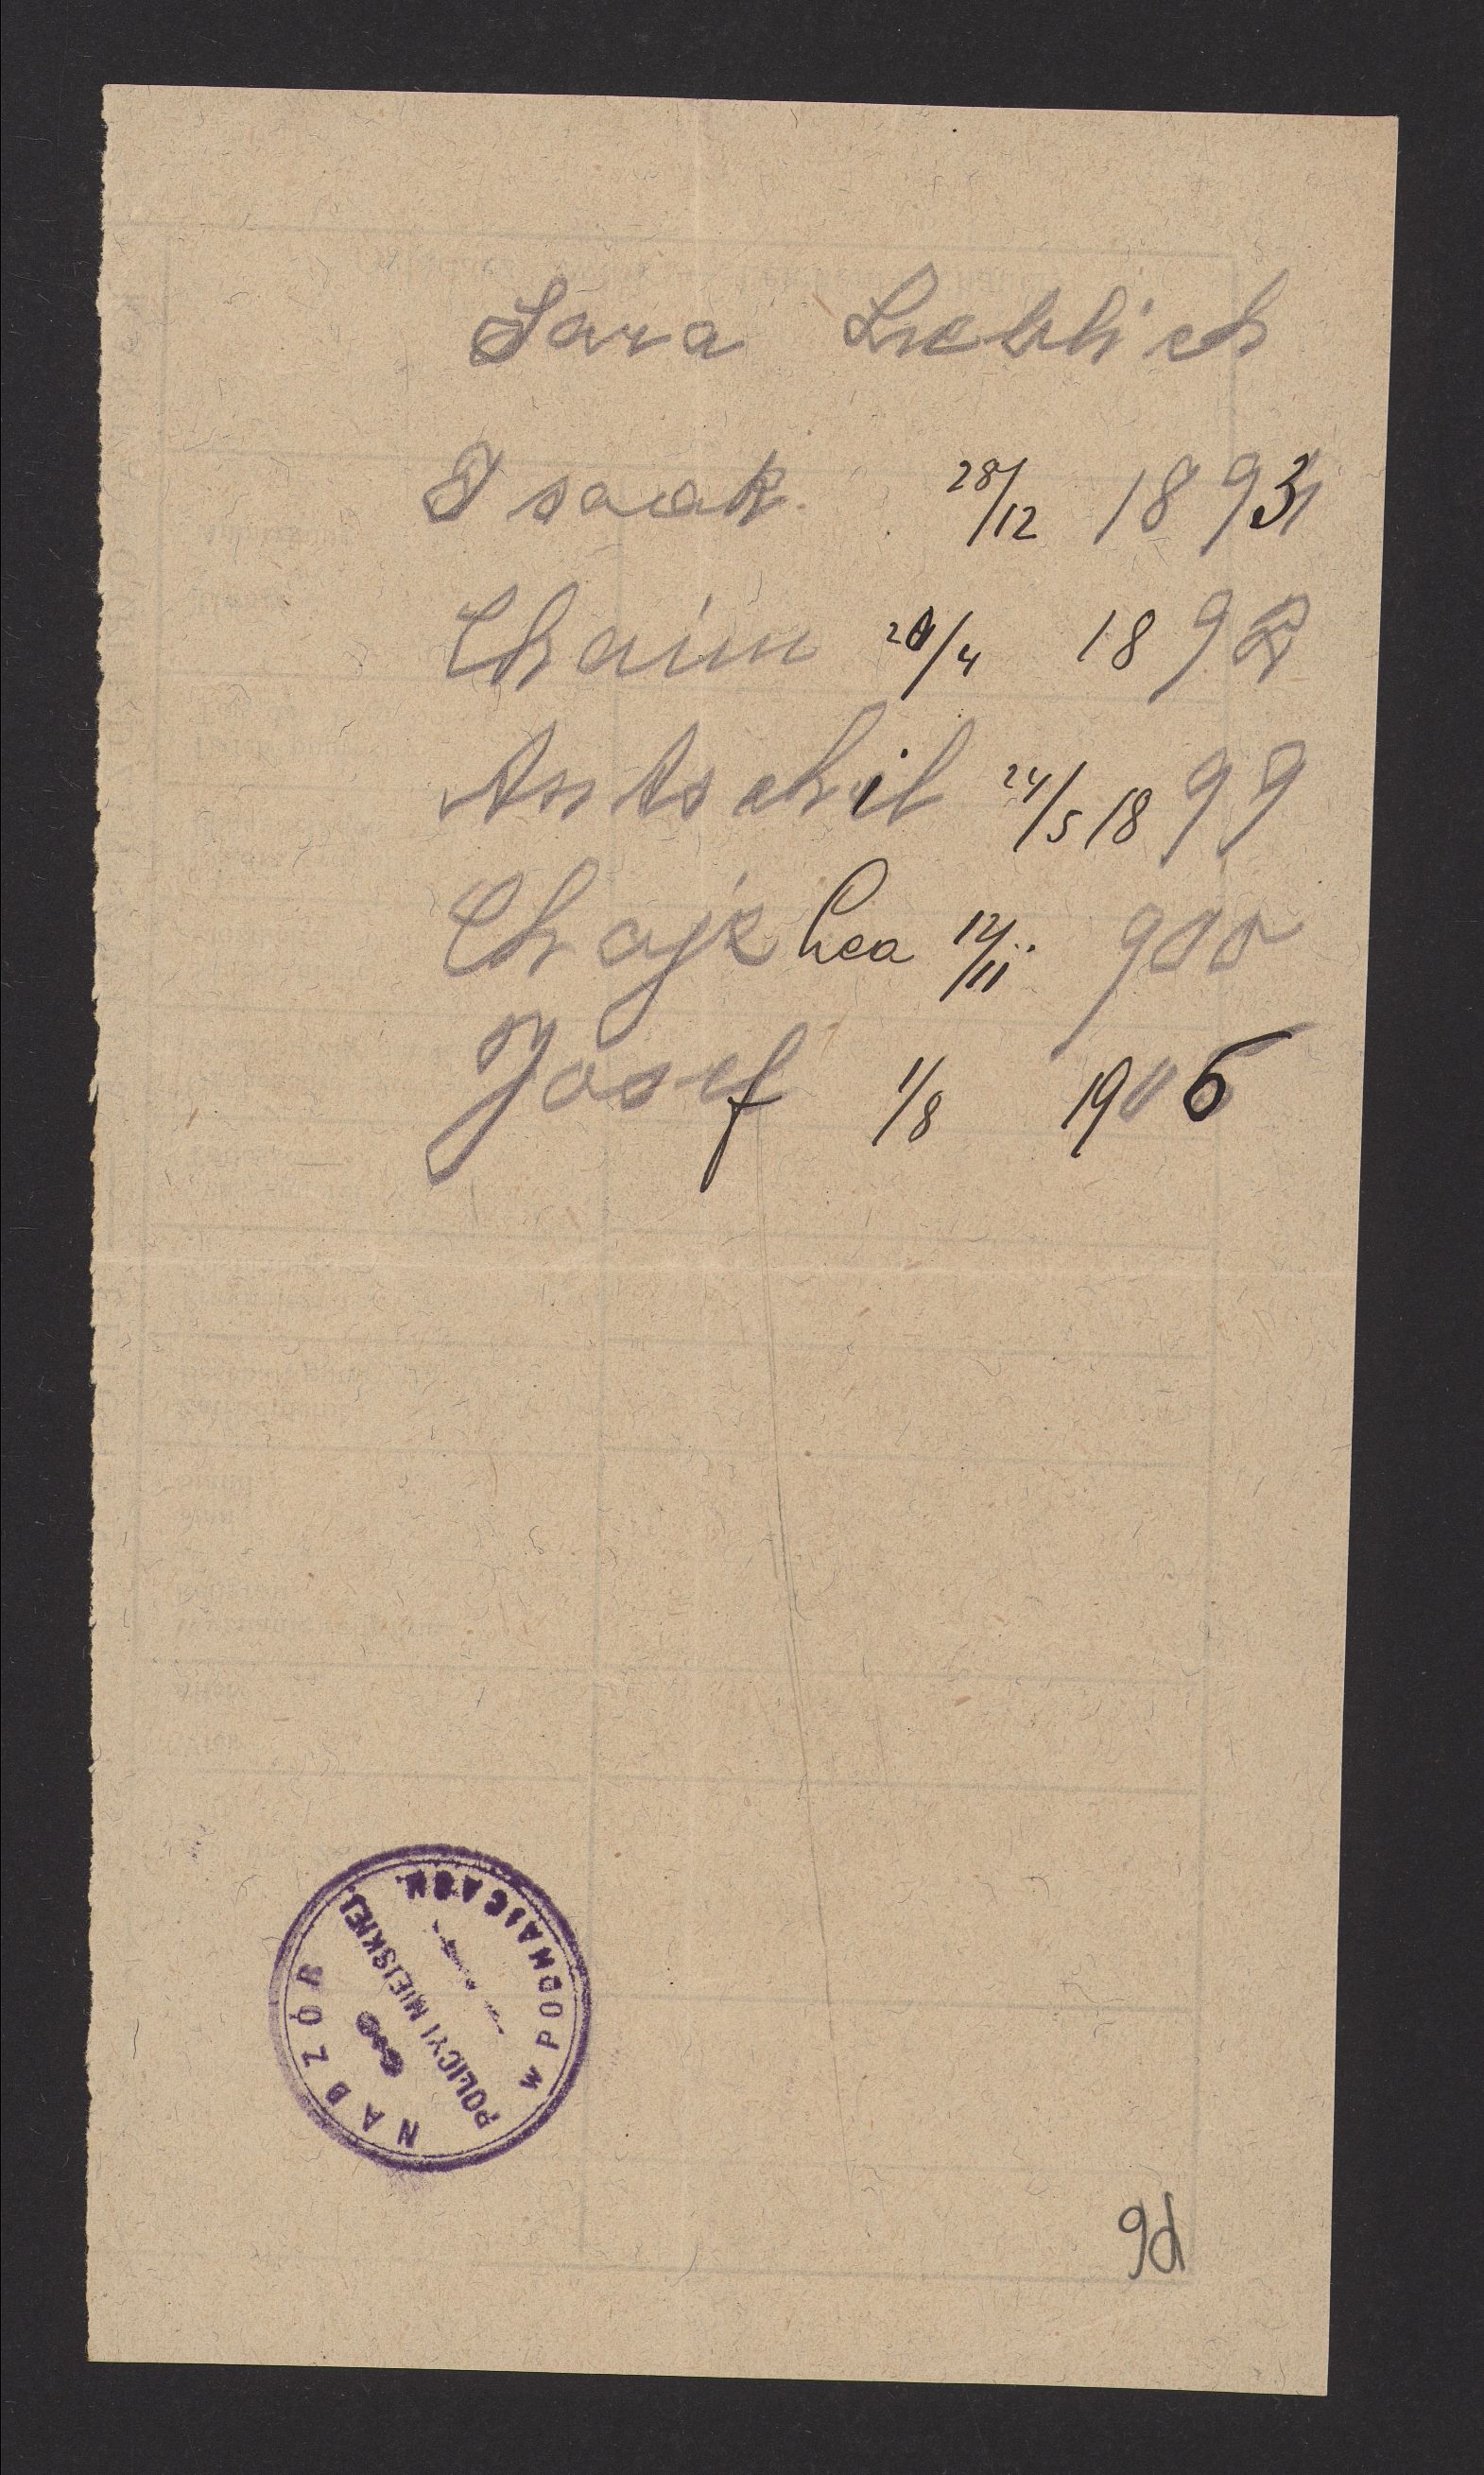 Sara Lieblich
Isaak 28/12 1893
Chaim 20/4 1892
Antschil 24/5 1899
Chaje Lea 12/11 900
Josef 1/8 1906
NADZÓR
POLICYI MIEJSKIEJ.
W PODHAJCACH.